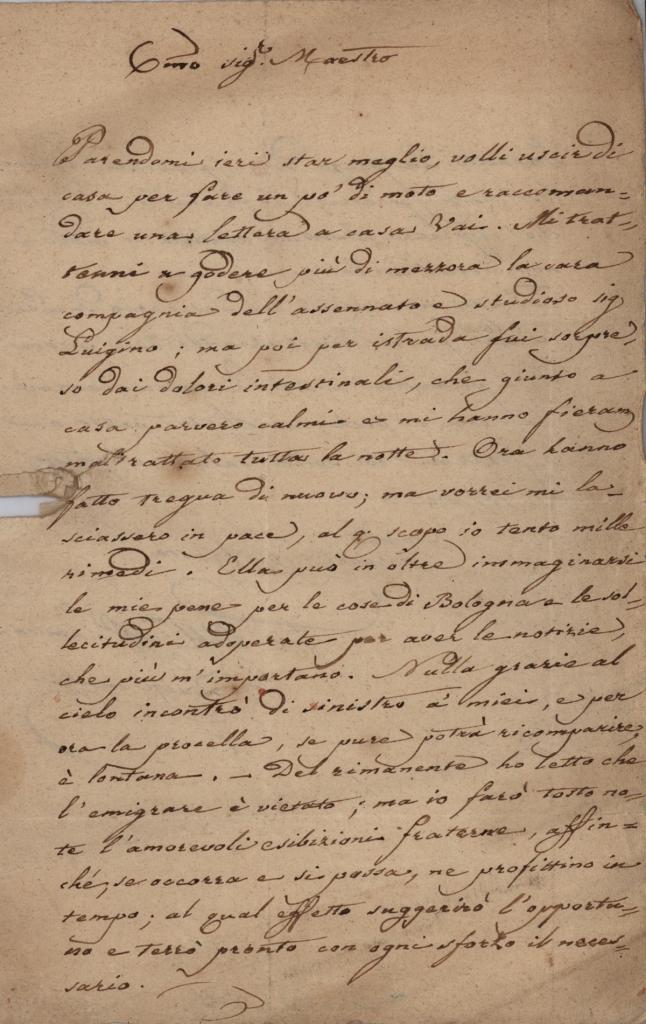 Emo sigr. Maestro
Parendomi ieri star meglio, volli uscir di
casa per fare un po' di moto e raccoman=
dare una lettera a casa Vai. Mi trat=
tenni a godere più di mezzora la cara
compagnia dell'assennato e studioso sig
Luigino; ma poi per istrada fui sorpre,
so dai dolori intestinali, che giunto a
casa parvero calmi e mi hanno fieram
maltrattato tutta la notte. Ora hanno
fatto tregua di nuovo; ma vorrei mi la=
sciassero in pace, al q. scopo io tento mille
rimedi. Ella può in oltre immaginarsi
le mie pene per le cose di Bologna e le sol=
lecitudini adoperate per aver le notizie,
che più m'importano. Nulla grazie al
cielo incontrò di sinistro a' miei, e per
ora la procella, se pure potrà ricomparire,
è lontana. — Del rimanente ho letto che
l'emigrare è vietato; ma io farò tosto no=
te l'amorevoli esibizioni fraterne, affin=
ché, se occorra e si possa, ne profittino in
tempo; al qual effetto suggerirò l'opportu=
no e terrò pronto con ogni sforzo il neces=
sario.